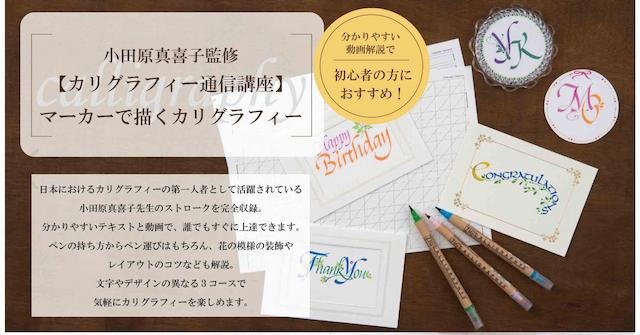 小田原真喜子監修
【カリグラフィー通信講座】
マーカーで描くカリグラフィー
calligraphy
分かりやすい
動画解説で
初心者の方に
おすすめ！
日本におけるカリグラフィーの第一人者として活躍されている
小田原真喜子先生のストロークを完全収録。
分かりやすいテキストと動画で、誰でもすぐに上達できます。
ペンの持ち方からペン運びはもちろん、花の模様の装飾や
レイアウトのコツなども解説。
文字やデザインの異なる３コースで
気軽にカリグラフィーを楽しめます。
Happy
Birthday
Thank You
CONGRATULATIONS